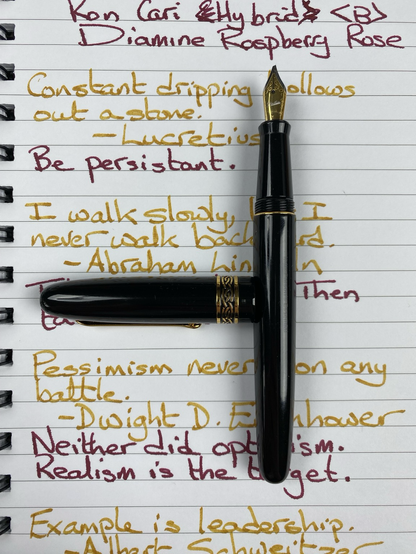 Kon Cari Hybrid <B>
Diamine Raspberry Rose
Constant dripping hollows
out a stone.
- Lucretius
Be persistant.
I walk slowly, I
never walk backward.
- Abraham Lincoln
Then
Pessimism never on any
battle.
- Dwight D. Eisenhower
Neither did optimism.
Realism is the target.
Example is leadership.
- Albert Schweitzer